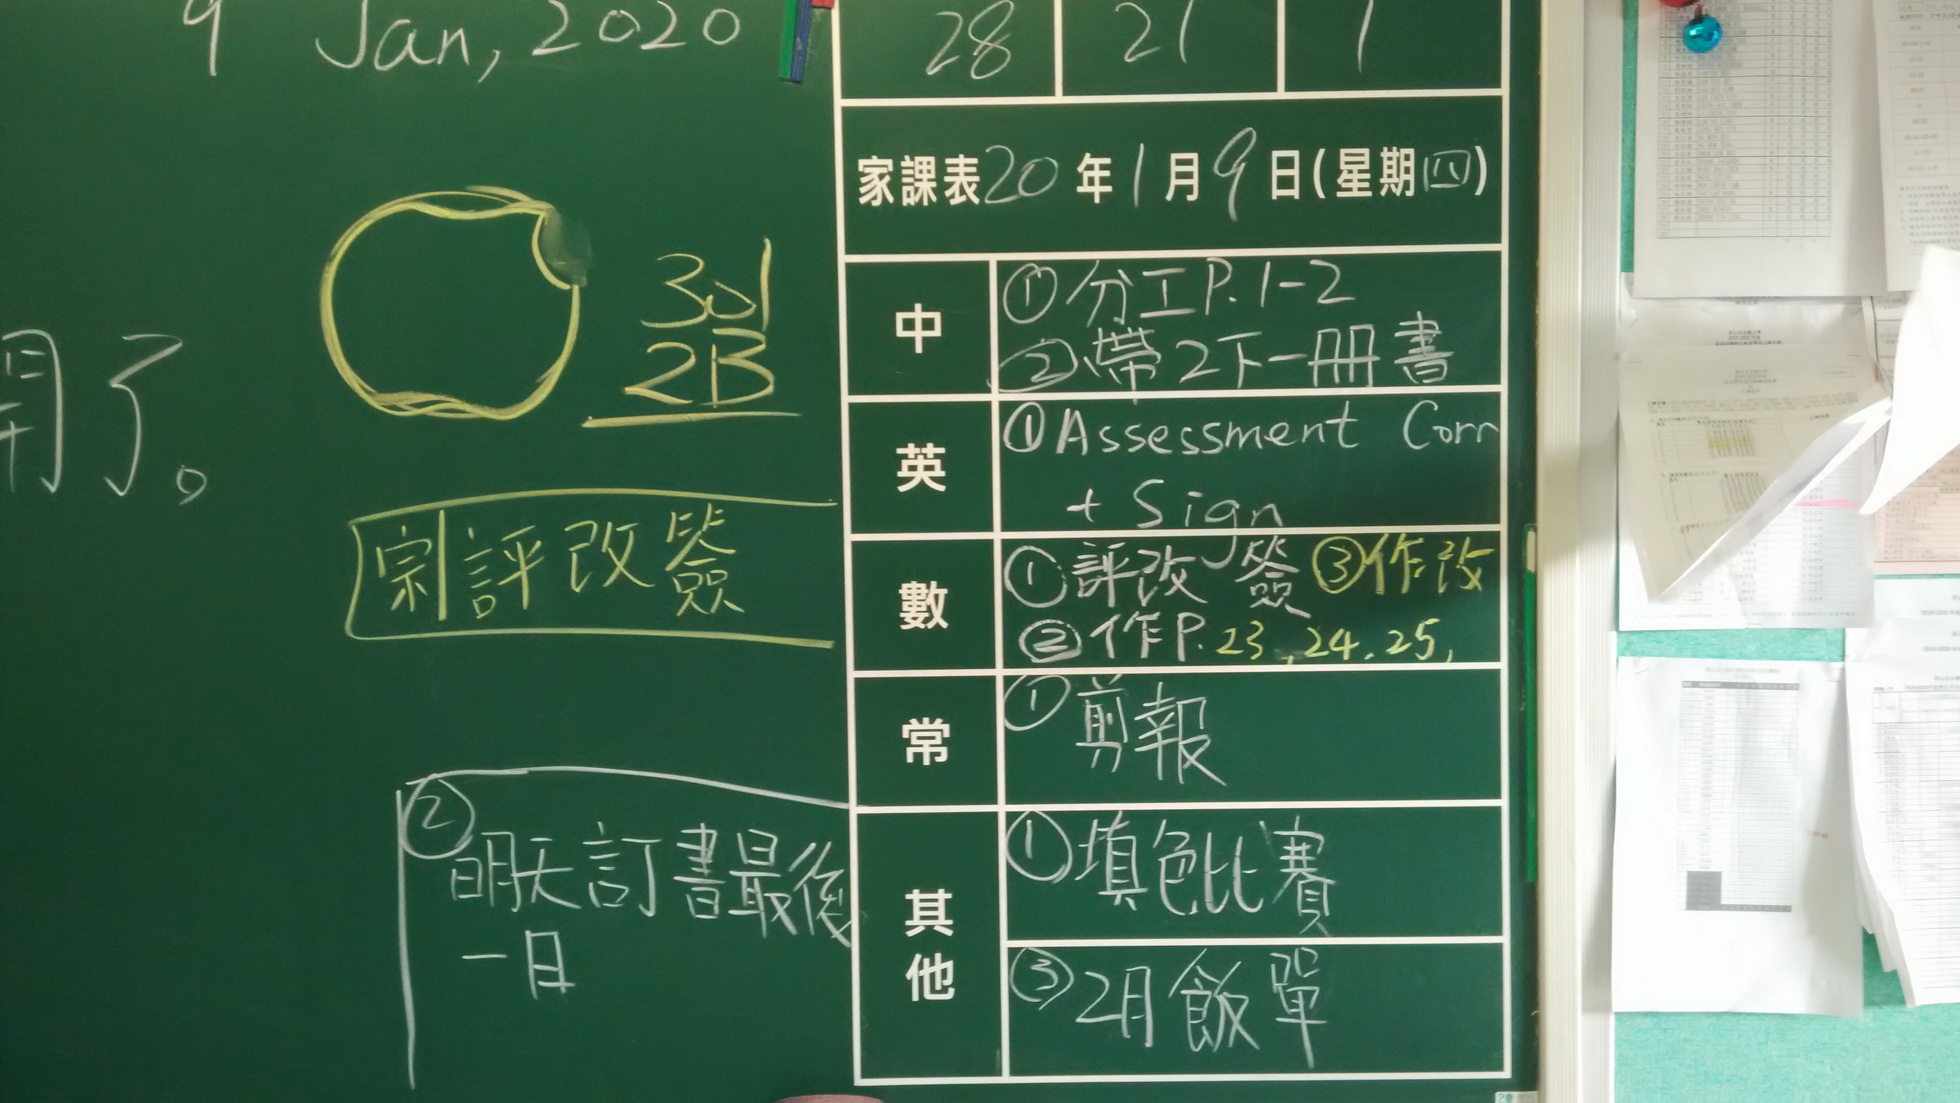 9 Jan, 2020
28 21 1
家課表20年1月9日(星期四)
用了。
301
2B
宗 評改簽
中
①分工P.1-2
②帶2下一冊書
英
①Assessment Corn
+ Sign
數
①評改簽 ③作改
②作P.23,24.25,
常
①剪報
其他
①填色比賽
②明天訂書最後
一日
③2月飯單